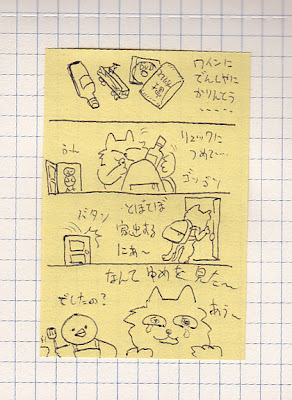 ワインに
でんしゃに
かりんとう
・・・・・
リュックに
つめて…
ゴソゴソ
バタン
とぼとぼ
家出する
にあ〜
なんてゆめを見た〜
でしたの?
あう〜